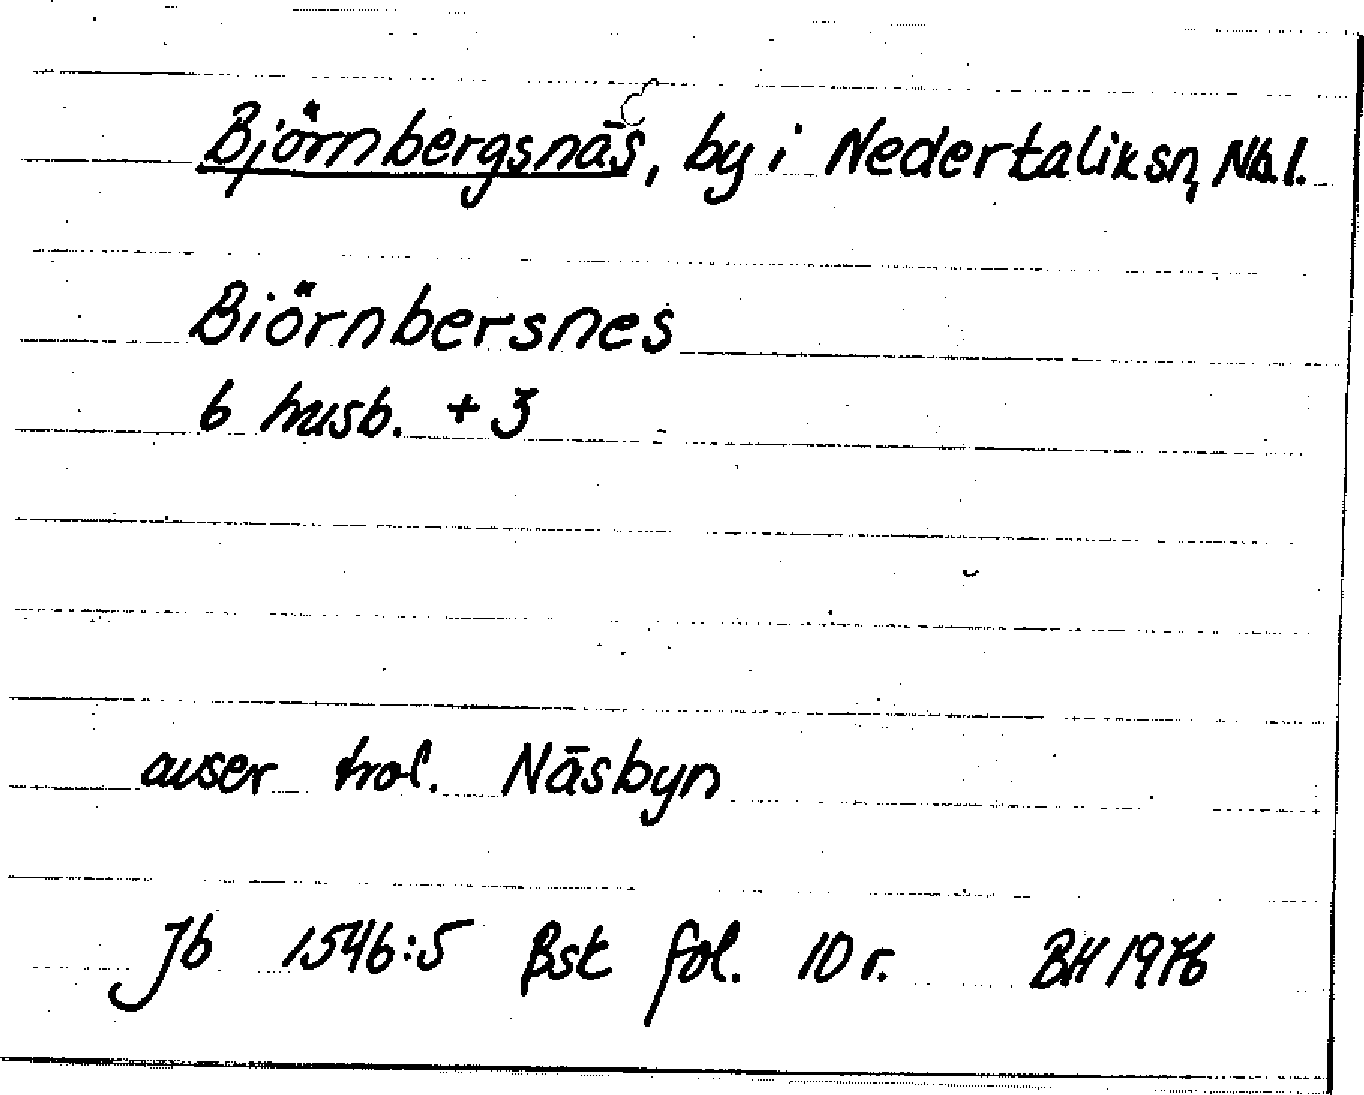 Björnbergsnäs, by i Nedertalik sn, Nb.l.
Biörnbersnes
6 husb. + 3
avser trol. Näsbyn
Jb 1546:5 Bst fol. 10 r. BH 1976